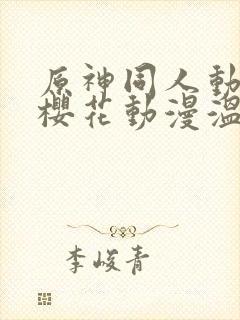 原神同人動
櫻花動漫溫
李峻青